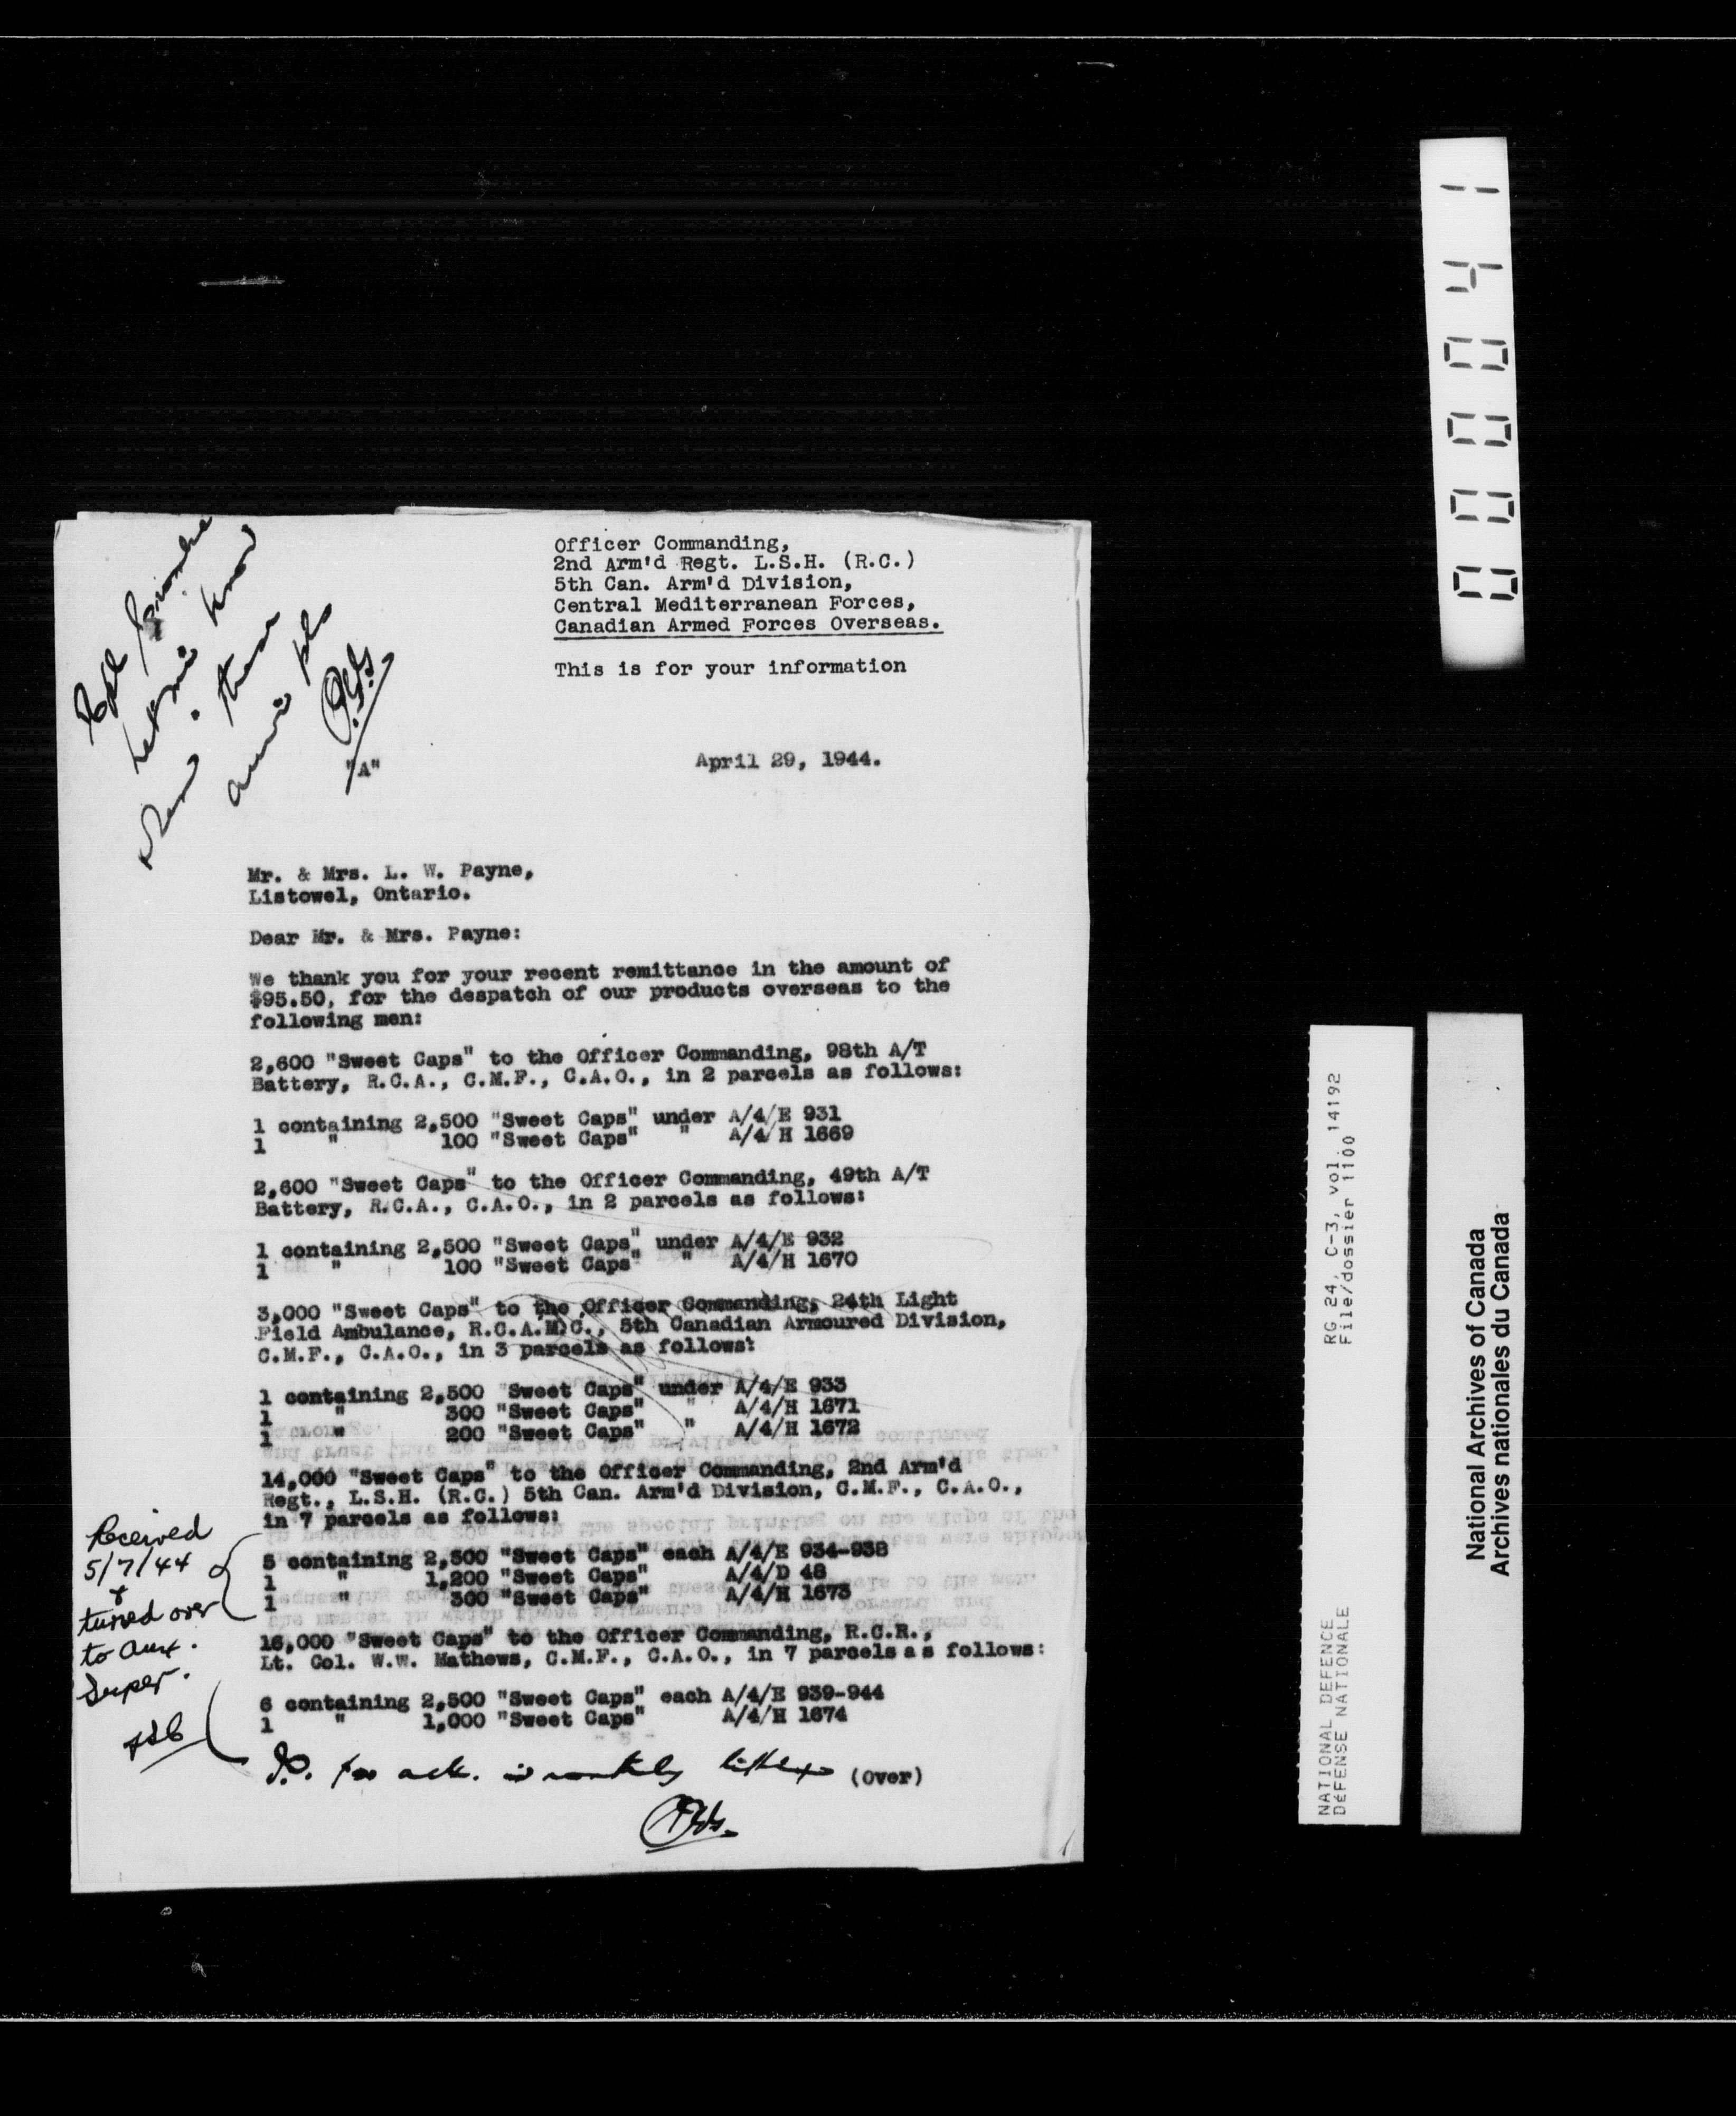 Officer Commanding,
2nd Arm'd Regt. L.S.H. (R.C.)
5th Can. Arm'd Division,
Central Mediterranean Forces,
Canadian Armed Forces Overseas.
This is for your information
let me know
when these
arrive pls
"A"
April 29, 1944.
Mr. & Mrs. L. W. Payne,
Listowel, Ontario.
Dear Mr. & Mrs. Payne:
We thank you for your recent remittance in the amount of
$95.50, for the despatch of our products overseas to the
following men:
2,600 "Sweet Caps" to the Officer Commanding, 98th A/T
Battery, R.C.A., C.M.F., C.A.O., in 2 parcels as follows:
1 containing 2,500 "Sweet Caps" under A/4/E 931
1 " 100 "Sweet Caps" " A/4/H 1669
2,600 "Sweet Caps" to the Officer Commanding, 49th A/T
Battery, R.C.A., C.A.O., in 2 parcels as follows:
1 containing 2,500 "Sweet Caps" under A/4/E 932
1 " 100 "Sweet Caps" " A/4/H 1670
3,000 "Sweet Caps" to the Officer Commanding, 24th Light
Field Ambulance, R.C.A.M.C., 5th Canadian Armoured Division,
C.M.F., C.A.O., in 3 parcels as follows:
1 containing 2,500 "Sweet Caps" under A/4/E 933
1 " 300 "Sweet Caps" " A/4/H 1671
1 " 200 "Sweet Caps" " A/4/H 1672
14,000 "Sweet Caps" to the Officer Commanding, 2nd Arm'd
Regt., L.S.H. (R.C.) 5th Can. Arm'd Division, C.M.F., C.A.O.,
in 7 parcels as follows:
5 containing 2,500 "Sweet Caps" each A/4/E 934-938
1 " 1,200 "Sweet Caps" A/4/D 48
1 " 300 "Sweet Caps" A/4/H 1673
Received
5/7/44
&
turned over
to Aux.
Super.
16,000 "Sweet Caps" to the Officer Commanding, R.C.R.,
Lt. Col. W.W. Mathews, C.M.F., C.A.O., in 7 parcels as follows:
6 containing 2,500 "Sweet Caps" each A/4/E 939-944
1 " 1,000 "Sweet Caps" A/4/H 1674
for ack. in monthly letter
(Over)
000041
NATIONAL DEFENCE RG 24, C-3, vol. 14192
DÉFENSE NATIONALE File/dossier 1100
National Archives of Canada
Archives nationales du Canada